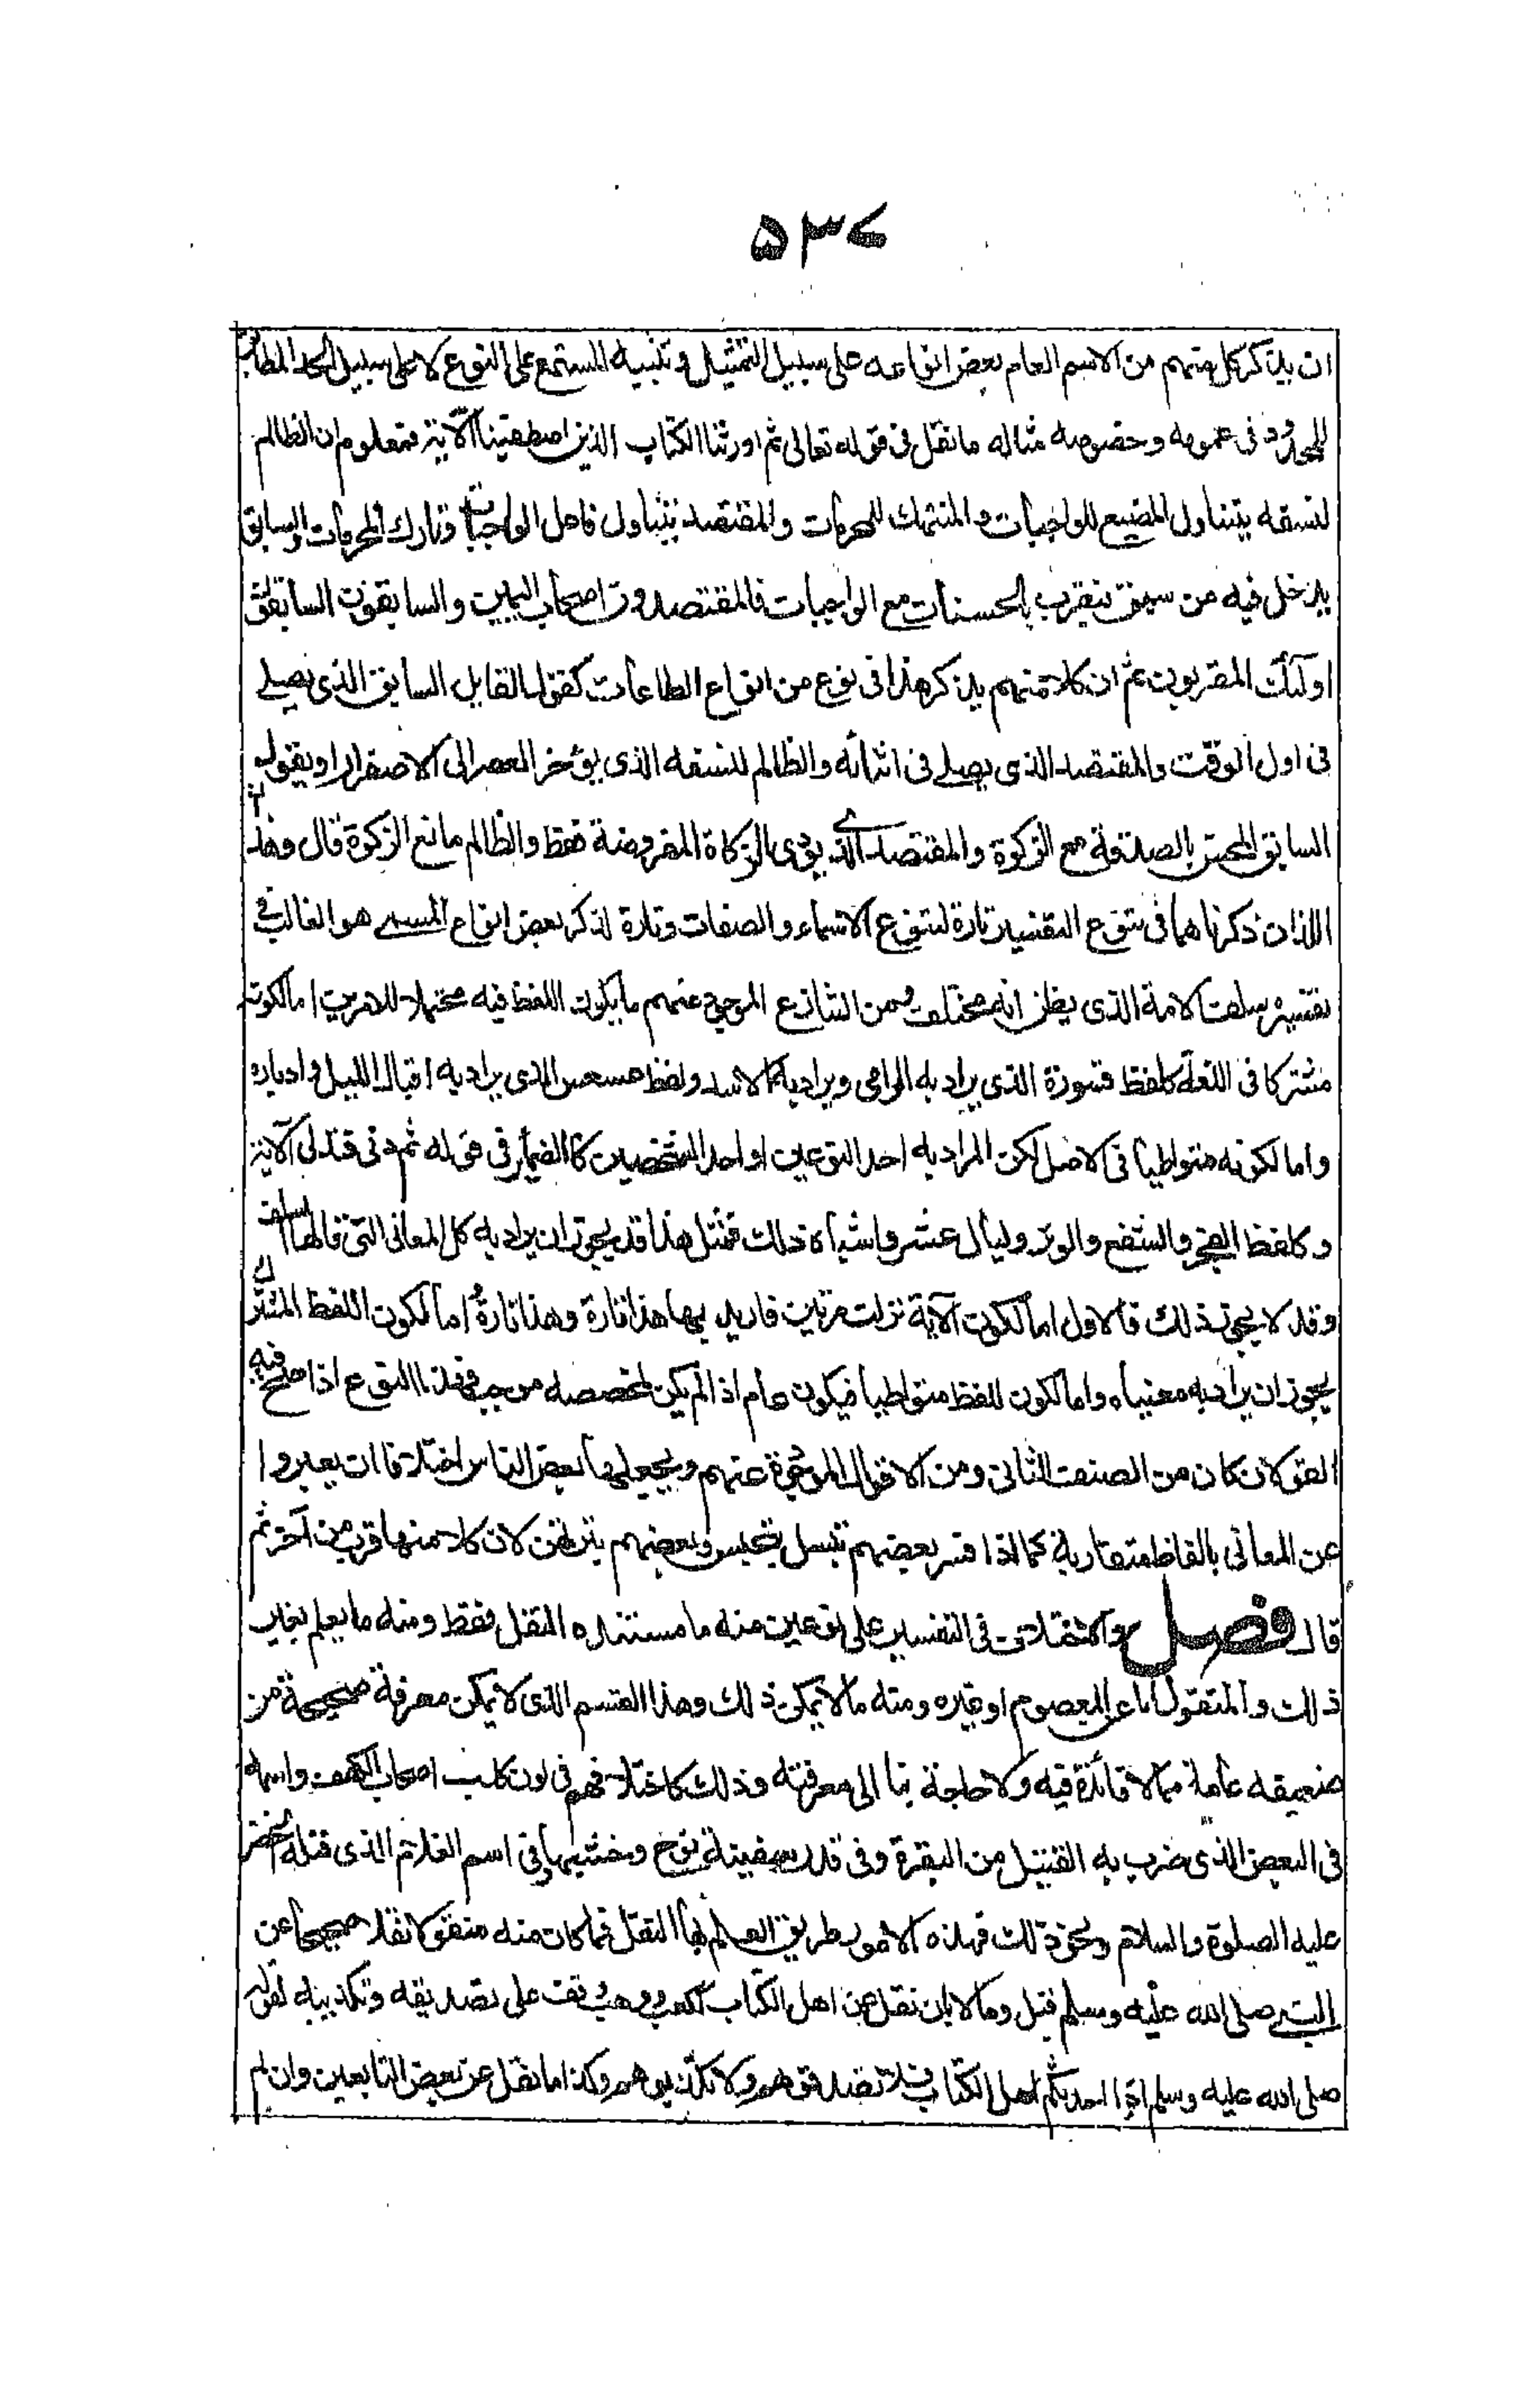 ۵۳۷
ان يذكر كل منهم من الاسم العام بعض انواعه على سبيل التمثيل و تنبيه المستمع على النوع لا على سبيل الحد المطابق
للمحدود فى عمومه و خصوصه مثاله ما نقل فى قوله تعالى ثم اورثنا الكتاب الذين اصطفينا الآية فمعلوم ان الظالم
لنفسه يتناول المضيع للواجبات و المنتهك للحرمات والمقتصد يتناول فاعل الواجبات وتارك المحرمات والسابق
يدخل فيه من سبق فتقرب بالحسنات مع الواجبات فالمقتصدون اصحاب اليمين والسابقون السابقون
اولئك المقربون ثم ان كلا منهم يذكر هذا فى نوع من انواع الطاعات كقول القايل السابق الذى يصلى
فى اول الوقت والمقتصد الذى يصلى فى اثنائه والظالم لنفسه الذى يؤخر العصر الى الاصفرار او يقول
السابق المحسن بالصدقة مع الزكوة والمقتصد الذى يودى الزكاة المفروضة فقط والظالم مانع الزكوة قال وهذا
اللذان ذكرناهما فى تنوع التفسير تارة لتنوع الاسماء والصفات وتارة لذكر بعض انواع المسمى هو الغالب فى
تفسير سلف الامة الذى يظن انه مختلف ومن التنازع الموجود عنهم ما يكون اللفظ فيه محتملا للامرين اما لكونه
مشتركا فى اللغة كلفظ قسورة الذى يراد به الرامى ويراد به الاسد ولفظ عسعس الذى يراد به اقبال الليل وادباره
واما لكونه متواطيا فى الاصل لكن المراد به احد النوعين او احد الشخصين كالضماير فى قوله ثم دنى فتدلى الآية
وكلفظ الفجر والشفع والوتر وليال عشر واشباه ذلك فمثل هذا قد يجوز ان يراد به كل المعانى التى قالها السلف
وقد لا يجوز ذلك فالاول اما لكون الآية نزلت مرتين فاريد بها هذا تارة وهذا تارةً اما لكون اللفظ المشترك
يجوز ان يراد به معنياه واما لكون اللفظ متواطيا فيكون عام اذا لم يكن لمخصصه موجب فهذا النوع اذا صح فيه
القولان كان من الصنف الثانى ومن الاقوال الموجودة عنهم ويجعلها بعض الناس اختلافا ان يعبروا
عن المعانى بالفاظ متقاربة كما اذا فسر بعضهم تبسل بتحبس وبعضهم بترتهن لان كلا منهما قريب من آخر ثم
قال فصل والاختلاف فى التفسير على نوعين منه ما مستنده النقل فقط ومنه ما يعلم بغير
ذلك والمنقول اما عن المعصوم او غيره ومنه ما لا يمكن ذلك وهذا القسم الذى لا يمكن معرفة صحيحة من
ضعيفه عامة مما لا فائدة فيه ولا حاجة بنا الى معرفته وذلك كاختلافهم فى لون كلب اصحاب الكهف واسمه
فى البعض الذى ضرب به القتيل من البقرة وفى قدر سفينة نوح وخشبها وفى اسم الغلام الذى قتله الخضر
عليه الصلوة والسلام ونحو ذلك فهذه الامور طريق العلم بها النقل فما كان منه منقولا نقلا صحيحا عن
النبى صلى الله عليه وسلم قبل وما لا بان نقل عن اهل الكتاب ككعب و وهب وقف على تصديقه وتكذيبه لقوله
صلى الله عليه وسلم اذا احدثكم اهل الكتاب فلا تصدقوهم ولا تكذبوهم وكذا ما نقل عن بعض التابعين وان لم